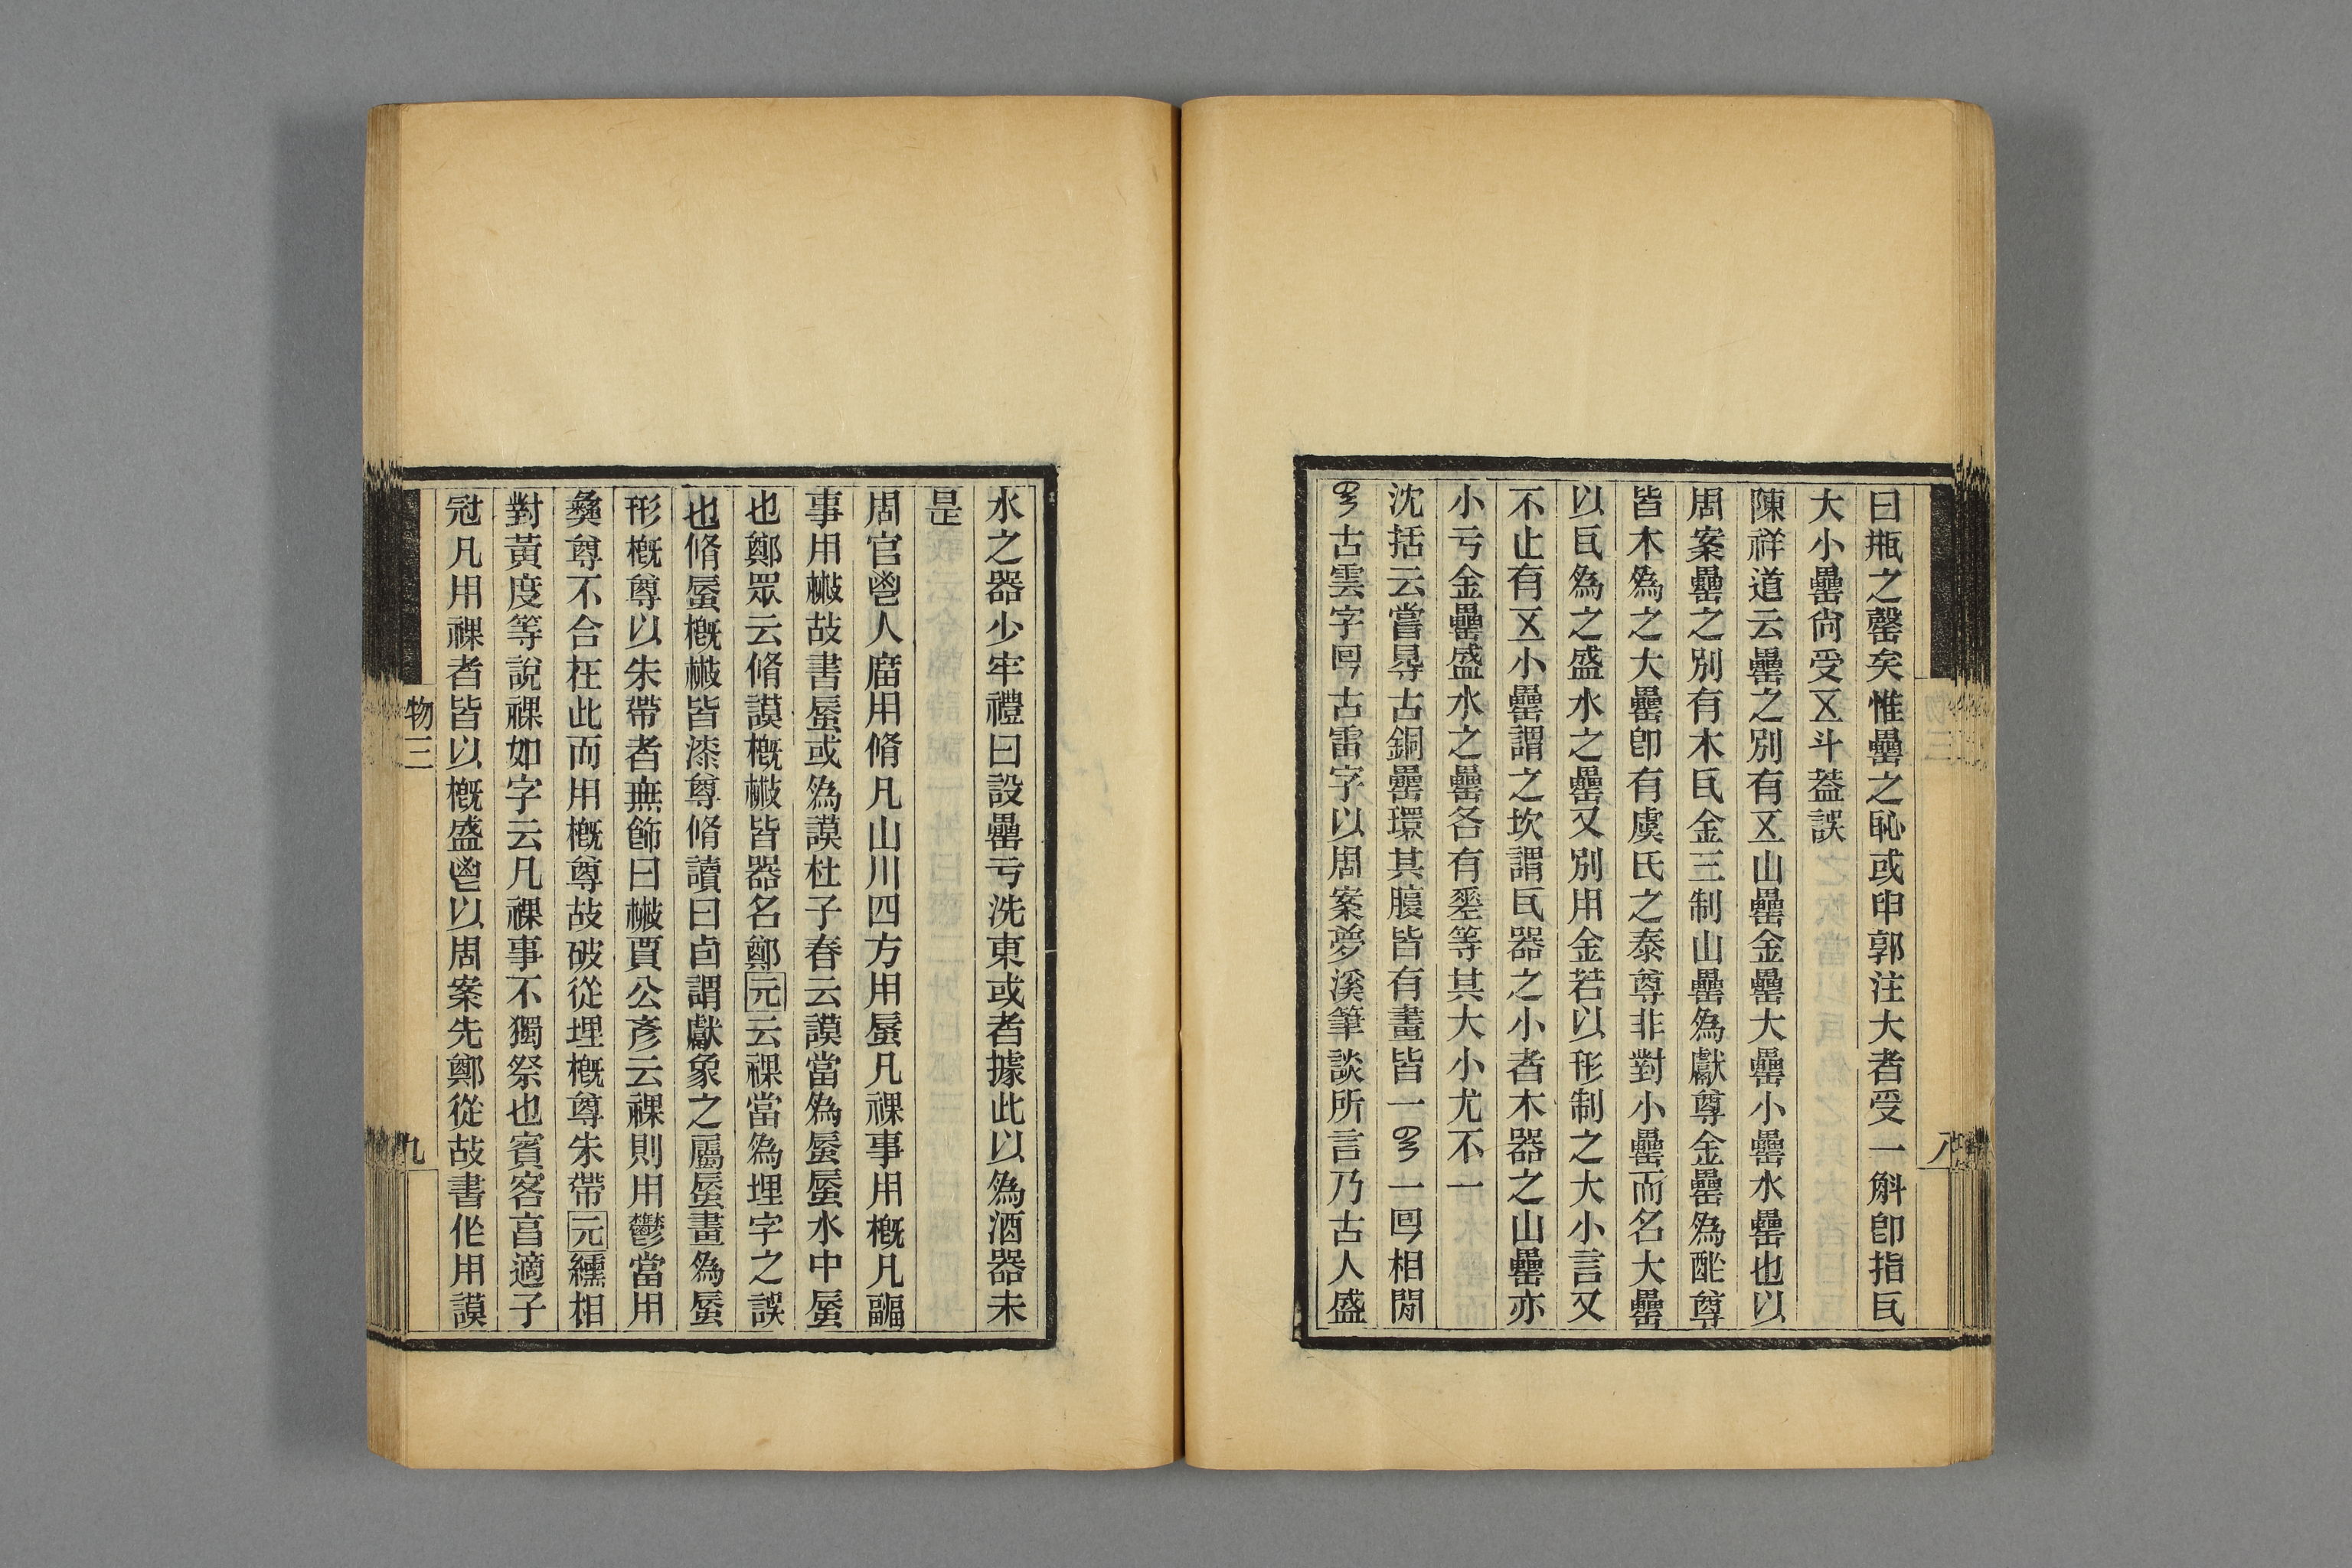 曰甁之罄矣惟罍之恥或申郭注大者受一斛卽指瓦
大小罍尙受㐅斗葢誤
陳祥道云罍之別有㐅山罍金罍大罍小罍水罍也以
周案罍之別有木瓦金三制山罍為獻尊金罍為酢尊
皆木為之大罍卽有虞氏之泰尊非對小罍而名大罍
以瓦為之盛水之罍又別用金若以形制之大小言又
不止有㐅小罍謂之坎謂瓦器之小者木器之山罍亦
小亏金罍盛水之罍各有等其大小尤不一
沈括云嘗㝷古銅罍環其腹皆有畫皆一一相閒
古雲字古雷字以周案夢溪筆談所言乃古人盛
水之器少牢禮曰設罍亏洗東或者據此以為酒器未
是
周官鬯人庿用脩凡山川四方用蜃凡祼事用概凡疈
事用㪔故書蜃或為謨杜子春云謨當為蜃蜃水中蜃
也鄭眾云脩謨概㪔皆器名鄭元云祼當為埋字之誤
也脩蜃概㪔皆漆尊脩讀曰卣謂獻象之屬蜃畫為蜃
形概尊以朱帶者無飾曰㪔賈公彥云祼則用鬱當用
彝尊不合在此而用概尊故破從埋概尊朱帶元纁相
對黃度等說祼如字云凡祼事不獨祭也賓客亯適子
冠凡用祼者皆以概盛鬯以周案先鄭從故書作用謨
物三
九
八